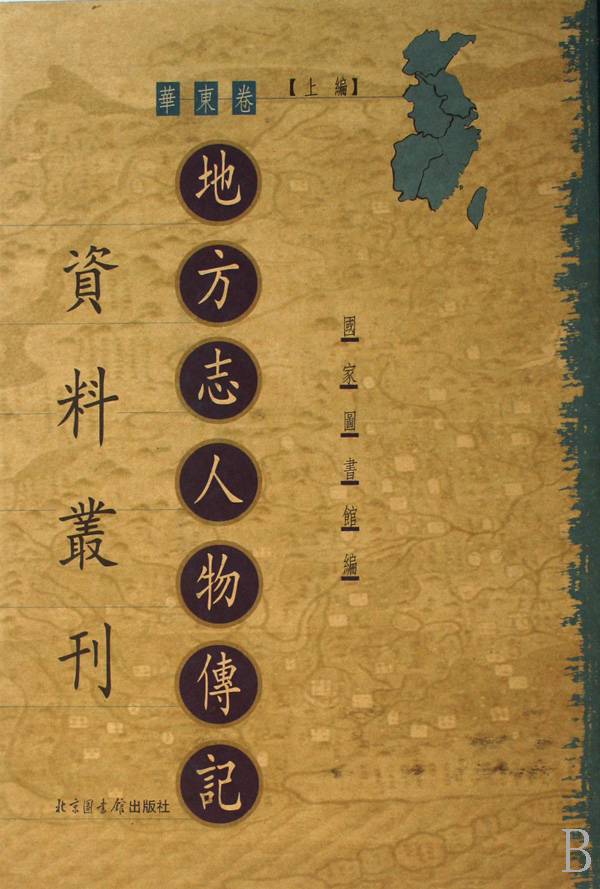 華東卷
【上編】
地方志人物傳記
資料叢刊
國家圖書館編
北京图书馆出版社
B